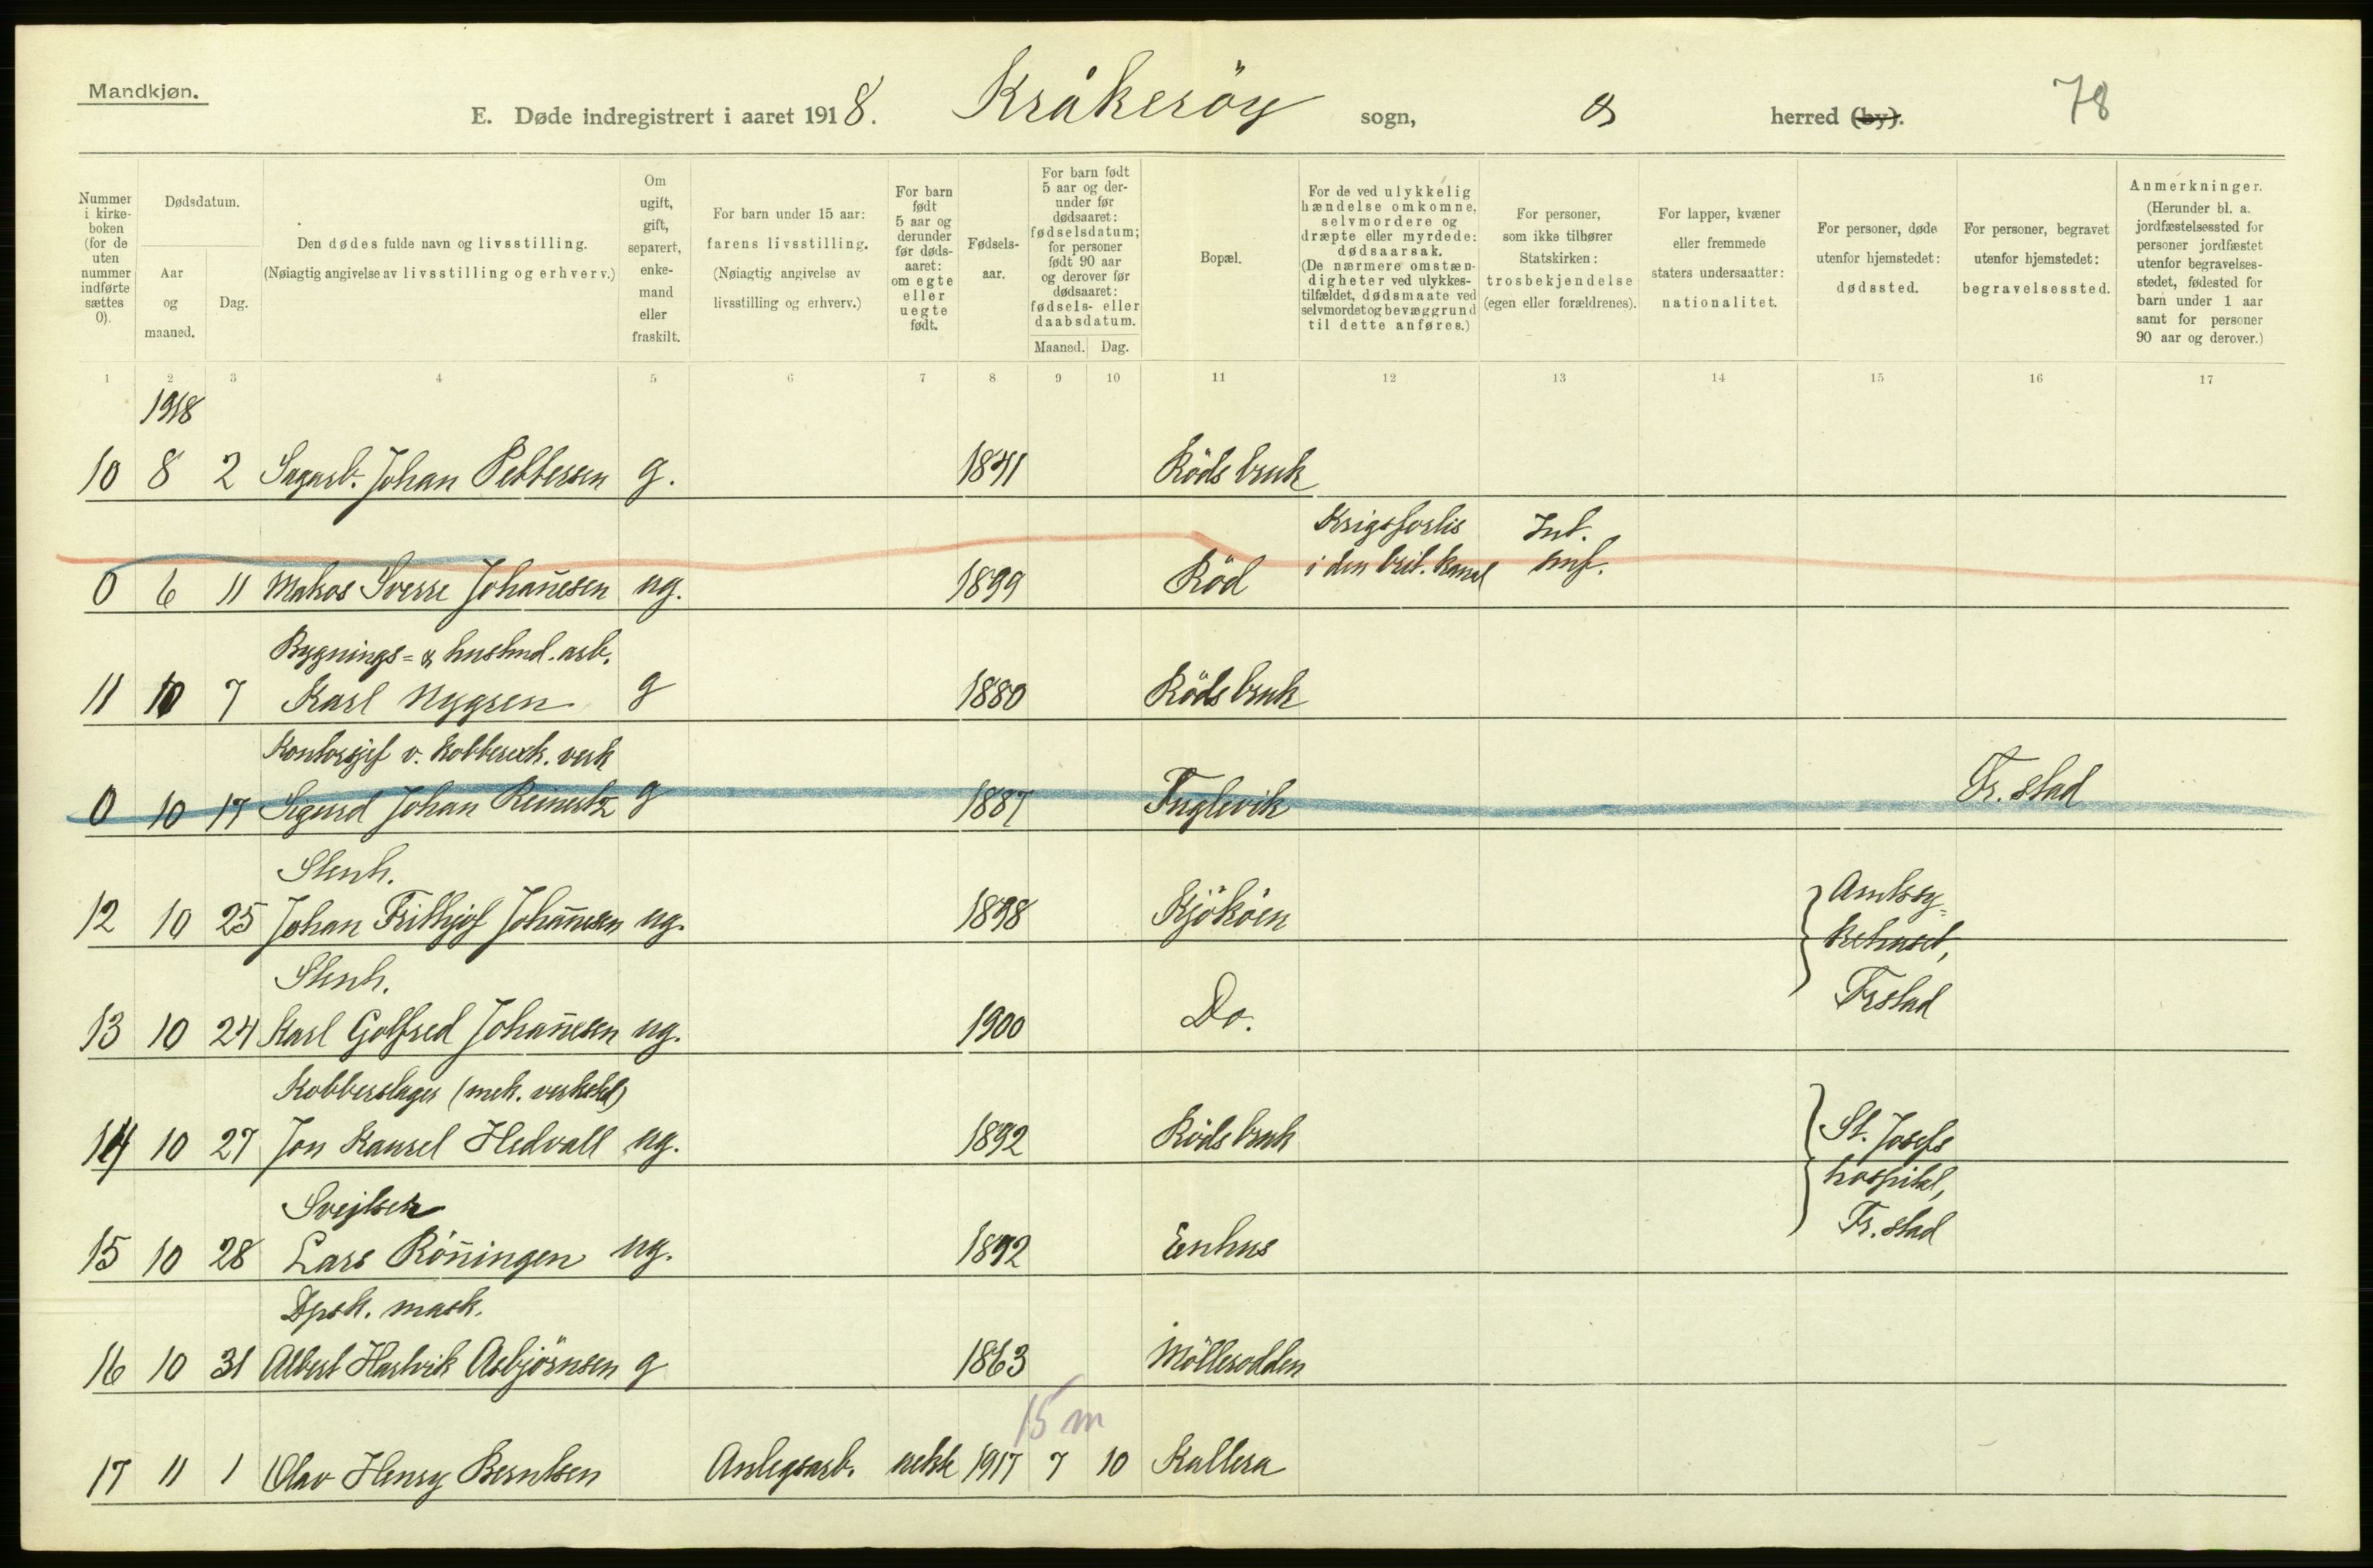 Mandkjøn.
E. Døde indregistrert i aaret 1918. Kråkeröy sogn, og herred (by). 78
Nummer i kirkeboken (for de uten nummer indførte sættes 0).
Dødsdatum.
Aar og maaned.
Dag.
Den dødes fulde navn og livsstilling.
(Nøiagtig angivelse av livsstilling og erhverv.)
Om ugift, gift, separert, enkemand eller fraskilt.
For barn under 15 aar: farens livsstilling.
(Nøiagtig angivelse av livsstilling og erhverv.)
For barn født 5 aar og derunder før dødsaaret: om egte eller uegte født.
Fødselsaar.
For barn født 5 aar og derunder før dødsaaret: fødselsdatum; for personer født 90 aar og derover før dødsaaret: fødsels- eller daabsdatum.
Maaned. Dag.
Bopæl.
For de ved ulykkelig hændelse omkomne, selvmordere og dræpte eller myrdede: dødsaarsak.
(De nærmere omstændigheter ved ulykkestilfældet, dødsmaate ved selvmordet og bevæggrund til dette anføres.)
For personer, som ikke tilhører Statskirken: trosbekjendelse (egen eller forældrenes).
For lapper, kvæner eller fremmede staters undersaatter: nationalitet.
For personer, døde utenfor hjemstedet: dødssted.
For personer, begravet utenfor hjemstedet: begravelsessted.
Anmerkninger.
(Herunder bl. a. jordfæstelsessted for personer jordfæstet utenfor begravelsesstedet, fødested for barn under 1 aar samt for personer 90 aar og derover.)
1 2 3 4 5 6 7 8 9 10 11 12 13 14 15 16 17
1918
10 8 2 Sagarb. Johan Pettersen g. 1841 Röds bruk
Krigsforlis
0 6 11 Matros Sverre Johan̄esen ug. 1899 Röd i den brit. kanal
Bygnings= &
11 10 7 Karl Nygren g 1880 Röds bruk
Kontorsjef v. Kobberextr. verk
0 10 17 Sigurd Johan Reinertz g 1887 Fuglevik Fr. stad
Stenh. Amtssy=
12 10 25 Johan Frithjof Johan̄esen ug. 1898 Kjököen kehuset,
Stenh. Frstad
13 10 24 Karl Golfred Johan̄esen ug. 1900 Do.
Kobberslager (mek. verksted)
14 10 27 Jon Hedvall ug. 1892 Röds bruk St. Josefs
hospital,
Svejser Fr. stad
15 10 28 Lars Rön̄ingen ug. 1892 Enhus
Dpsk. mask.
16 10 31 Albert Hartvik Asbjörnsen g 1863 Mölleodden
15 m
17 11 1 Olav Henry Berntsen Anlegsarb. ekte 1917 7 10 Kallera